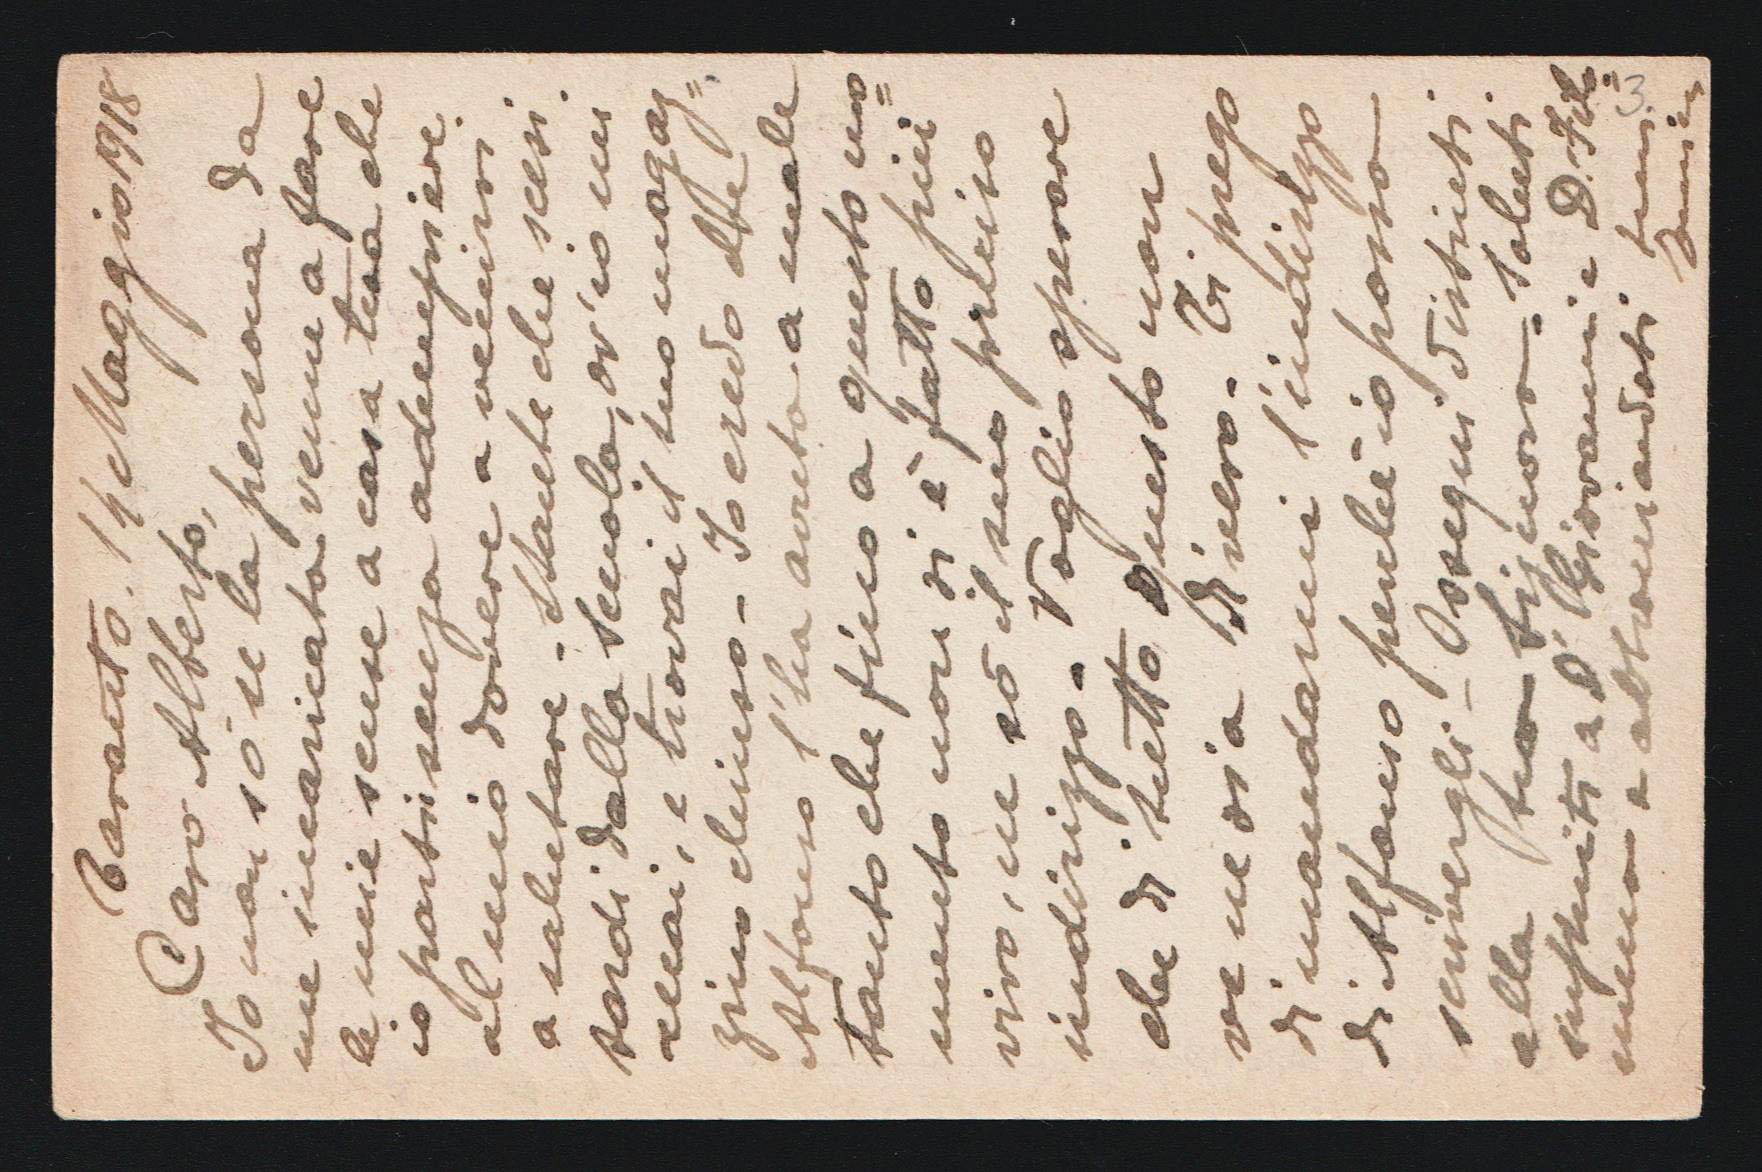 Taranto. 14 Maggio 1918
Caro Alberto,
Io non sò se la persona da
me incaricata venne a fare
le mie scuse a casa tua che
io partii senza adempiere
al mio dovere a venirvi
a salutare. Stante che scesi
tardi dalla scuola, ov'io mi
recai, e trovai il tuo magaz=
zino chiuso. Io credo che
Alfonso l'ha avuto a male
tanto che fino a questo mo=
mento non si è fatto più
vivo, ne sò il suo preciso
indirizzo. Voglio sperare
che di tutto questo non
ve ne sia di vero. Ti prego
di mandarmi l'indirizzo
di Alfonso perché io possa
scrivergli - Ossequi distinti
alla tua Signora. Saluti
infiniti a D. Giovanni e D.
mamma abbonandoti
3